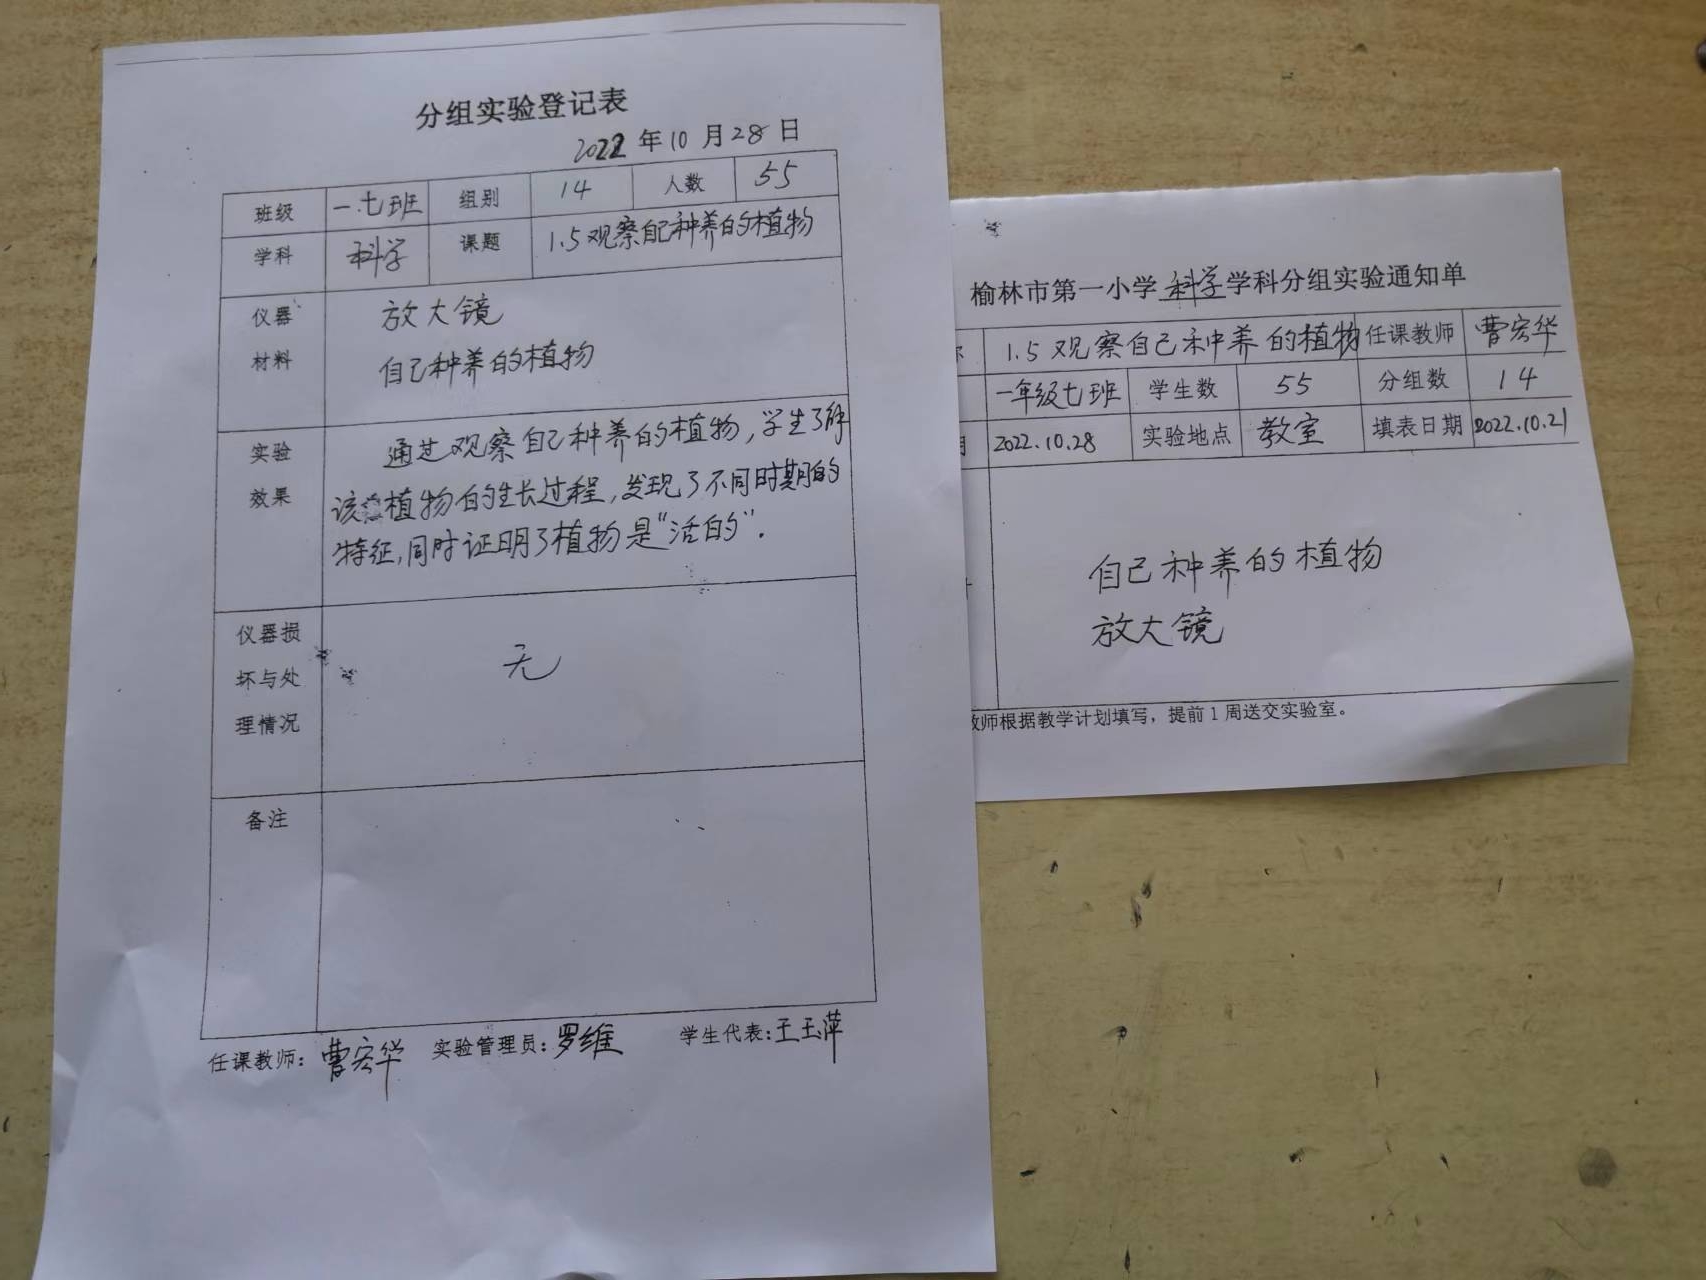 分组实验登记表
2022年10月28日
班级 一.七班 组别 14 人数 55
学科 科学 课题 1.5观察自己种养的植物
仪器 放大镜
材料 自己种养的植物
实验 通过观察自己种养的植物,学生了解
效果 该植物的生长过程,发现了不同时期的
特征,同时证明了植物是“活的”.
仪器损
坏与处 无
理情况
备注
任课教师: 曹宏华 实验管理员: 罗维 学生代表: 王玉萍
榆林市第一小学科学学科分组实验通知单
1.5观察自己种养的植物 任课教师 曹宏华
一年级七班 学生数 55 分组数 14
2022.10.28 实验地点 教室 填表日期 2022.10.21
自己种养的植物
放大镜
教师根据教学计划填写，提前1周送交实验室。